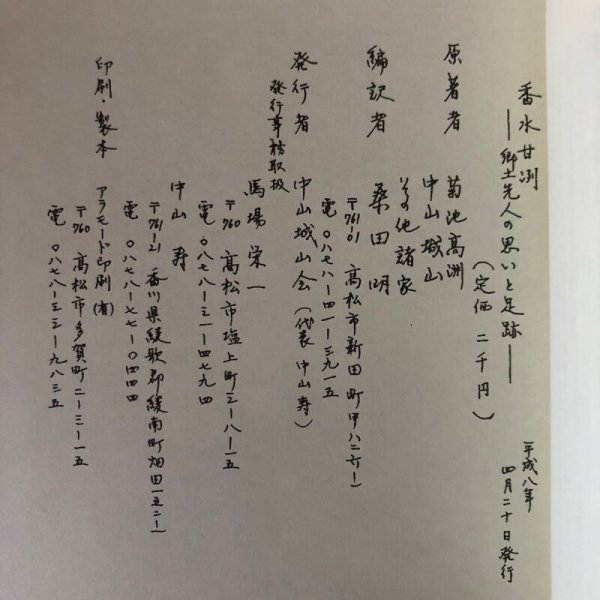 香水甘冽
――郷土先人の思いと足跡――
(定価 二千円)
平成八年
四月二十日発行
原著者 菊池高洲
中山城山
その他諸家
編訳者 桑田明
〒761-01 高松市新田町甲八二六ー一
電 〇八七八ー四一ー三九一五
発行者 中山城山会(代表 中山寿)
発行事務取扱
馬場栄一
〒760 高松市塩上町三ー八ー一五
電 〇八七八ー三一ー四七九四
中山 寿
〒761-21 香川県綾歌郡綾南町畑田一五二一
電 〇八七八ー七七ー〇四四四
印刷・製本 アラモード印刷(有)
〒760 高松市多賀町二ー三ー一五
電 〇八七八ー三三ー九八三五